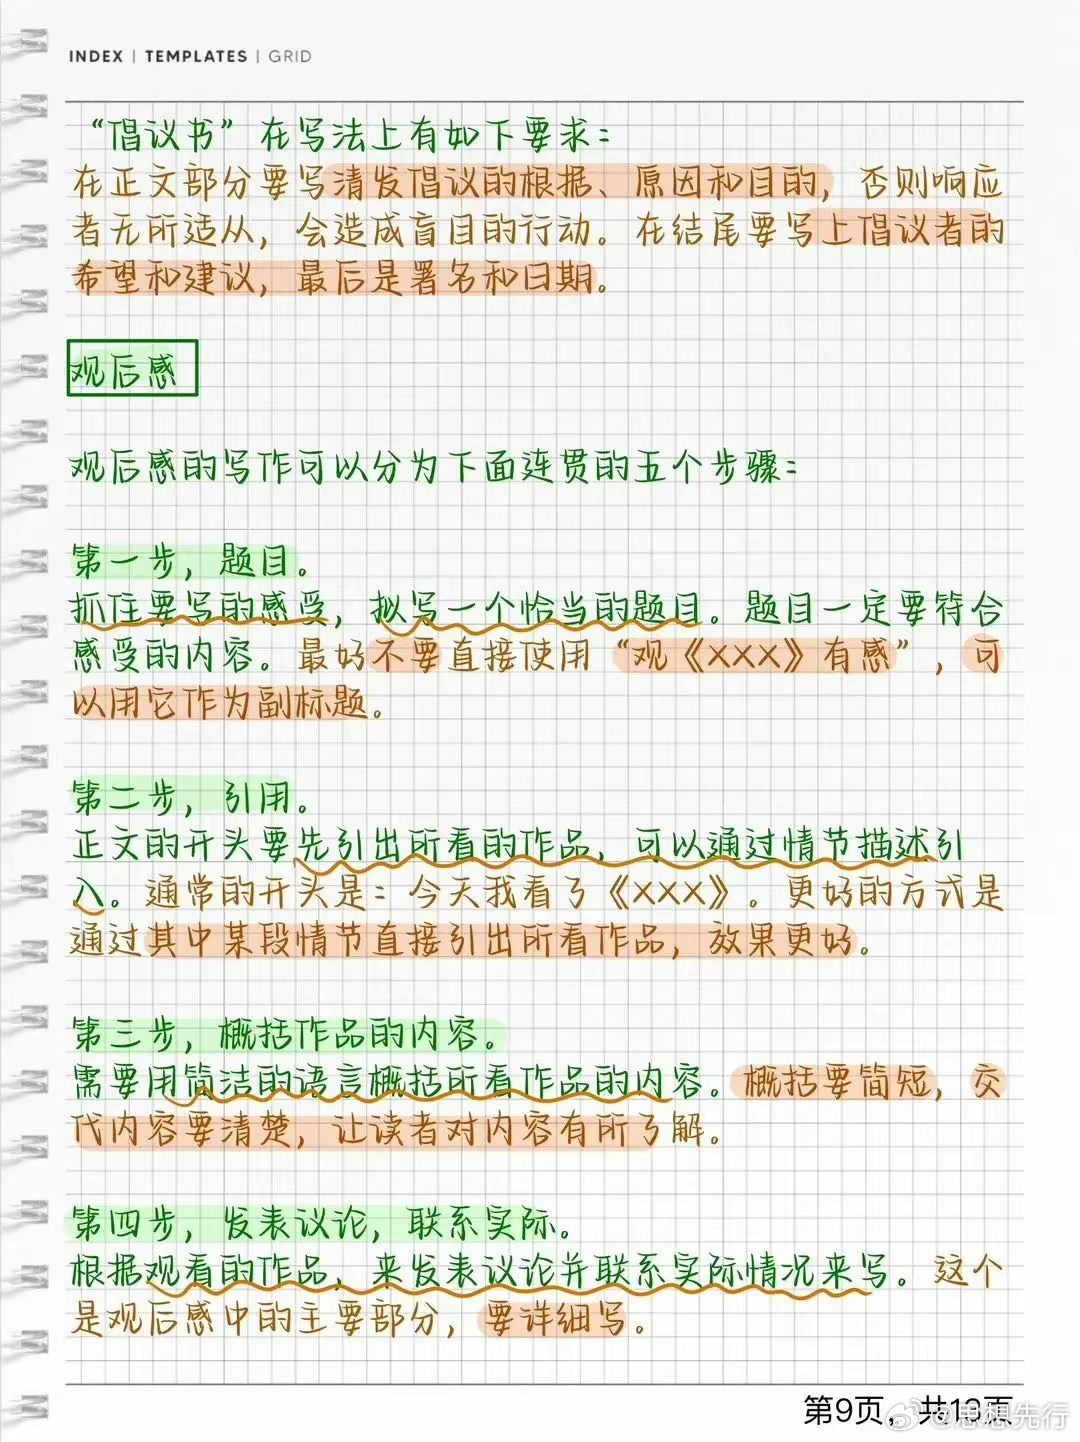 INDEX | TEMPLATES | GRID
“倡议书”在写法上有如下要求：
在正文部分要写清发倡议的根据、原因和目的，否则响应
者无所适从，会造成盲目的行动。在结尾要写上倡议者的
希望和建议，最后是署名和日期。
观后感
观后感的写作可以分为下面连贯的五个步骤：
第一步，题目。
抓住要写的感受，拟写一个恰当的题目。题目一定要符合
感受的内容。最好不要直接使用“观《XXX》有感”，可
以用它作为副标题。
第二步，引用。
正文的开头要先引出所看的作品，可以通过情节描述引
入。通常的开头是：今天我看了《XXX》。更好的方式是
通过其中某段情节直接引出所看作品，效果更好。
第三步，概括作品的内容。
需要用简洁的语言概括所看作品的内容。概括要简短，交
代内容要清楚，让读者对内容有所了解。
第四步，发表议论，联系实际。
根据观看的作品，来发表议论并联系实际情况来写。这个
是观后感中的主要部分，要详细写。
第9页，共10页
@思想先行